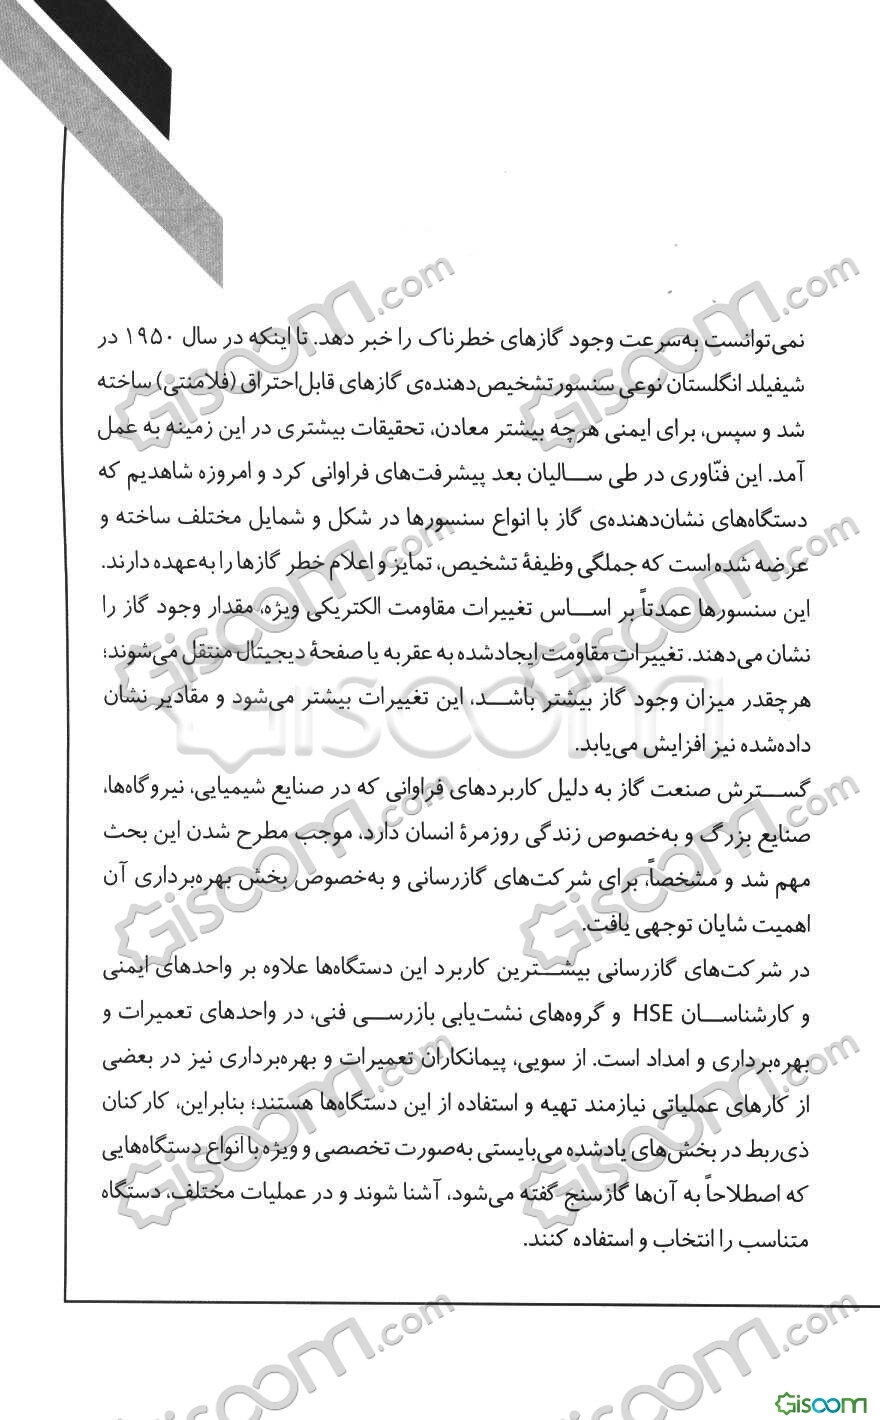 نمی‌توانست به‌سرعت وجود گازهای خطرناک را خبر دهد. تا اینکه در سال ۱۹۵۰ در
شیفیلد انگلستان نوعی سنسور تشخیص‌دهنده‌ی گازهای قابل‌احتراق (فلامنتی) ساخته
شد و سپس، برای ایمنی هرچه بیشتر معادن، تحقیقات بیشتری در این زمینه به عمل
آمد. این فنّاوری در طی سالیان بعد پیشرفت‌های فراوانی کرد و امروزه شاهدیم که
دستگاه‌های نشان‌دهنده‌ی گاز با انواع سنسورها در شکل و شمایل مختلف ساخته و
عرضه شده است که جملگی وظیفهٔ تشخیص، تمایز و اعلام خطر گازها را به‌عهده دارند.
این سنسورها عمدتاً بر اساس تغییرات مقاومت الکتریکی ویژه، مقدار وجود گاز را
نشان می‌دهند. تغییرات مقاومت ایجادشده به عقربه یا صفحهٔ دیجیتال منتقل می‌شوند؛
هرچقدر میزان وجود گاز بیشتر باشد، این تغییرات بیشتر می‌شود و مقادیر نشان
داده‌شده نیز افزایش می‌یابد.
گسترش صنعت گاز به دلیل کاربردهای فراوانی که در صنایع شیمیایی، نیروگاه‌ها،
صنایع بزرگ و به‌خصوص زندگی روزمرهٔ انسان دارد، موجب مطرح شدن این بحث
مهم شد و مشخصاً، برای شرکت‌های گازرسانی و به‌خصوص بخش بهره‌برداری آن
اهمیت شایان توجهی یافت.
در شرکت‌های گازرسانی بیشترین کاربرد این دستگاه‌ها علاوه بر واحدهای ایمنی
و کارشناسان HSE و گروه‌های نشت‌یابی بازرسی فنی، در واحدهای تعمیرات و
بهره‌برداری و امداد است. از سویی، پیمانکاران تعمیرات و بهره‌برداری نیز در بعضی
از کارهای عملیاتی نیازمند تهیه و استفاده از این دستگاه‌ها هستند؛ بنابراین، کارکنان
ذی‌ربط در بخش‌های یادشده می‌بایستی به‌صورت تخصصی و ویژه با انواع دستگاه‌هایی
که اصطلاحاً به آن‌ها گازسنج گفته می‌شود، آشنا شوند و در عملیات مختلف، دستگاه
متناسب را انتخاب و استفاده کنند.
Gisoom